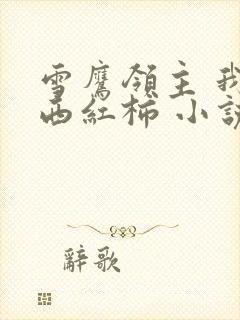 雪鷹領主 我
西紅柿 小說
辭歌